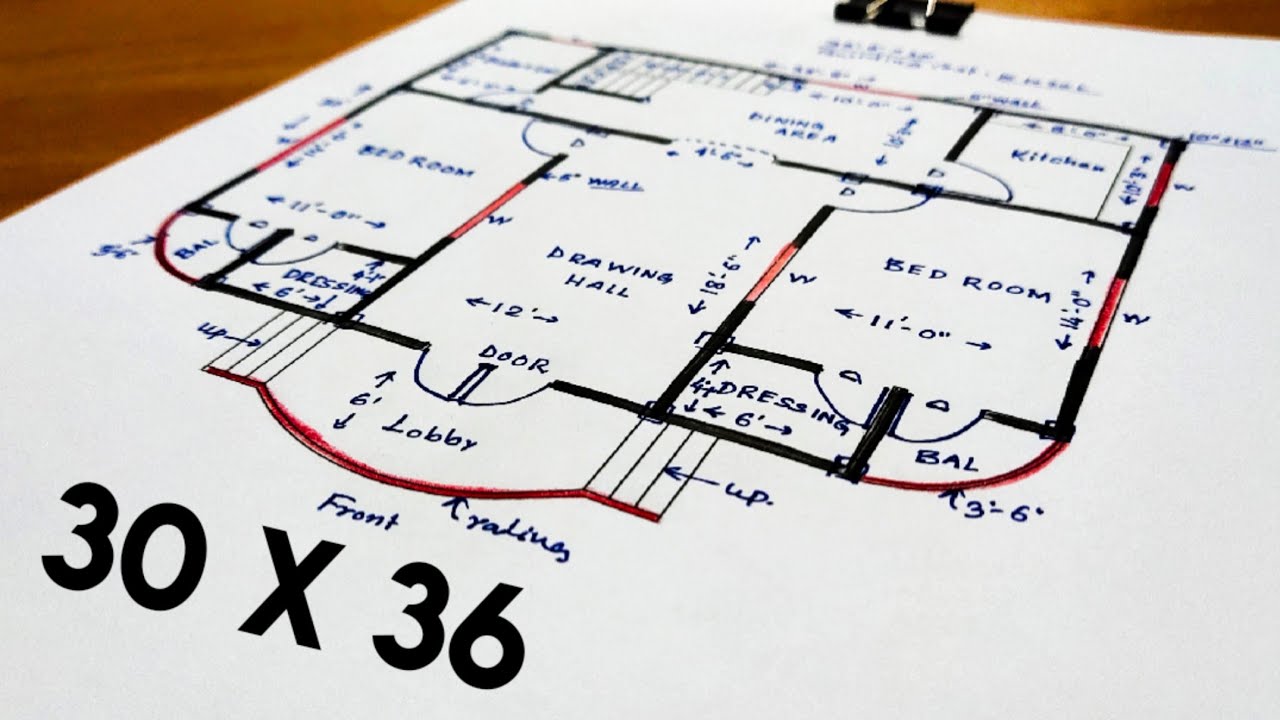 6" WALL
DINING
AREA
10'-0"
Kitchen
8'-0"
D
D
D
4'-6"
BED ROOM
6" WALL
W
W
11'-0"
DRAWING
HALL
18'-6"
W
BED ROOM
W
14'-0"
11'-0"
W
BAL
D
D
DRESSING
6'
12'
up
DOOR
6'
Lobby
DRESSING
6'
D
D
BAL
up.
3'-6"
Front
railing
30 X 36